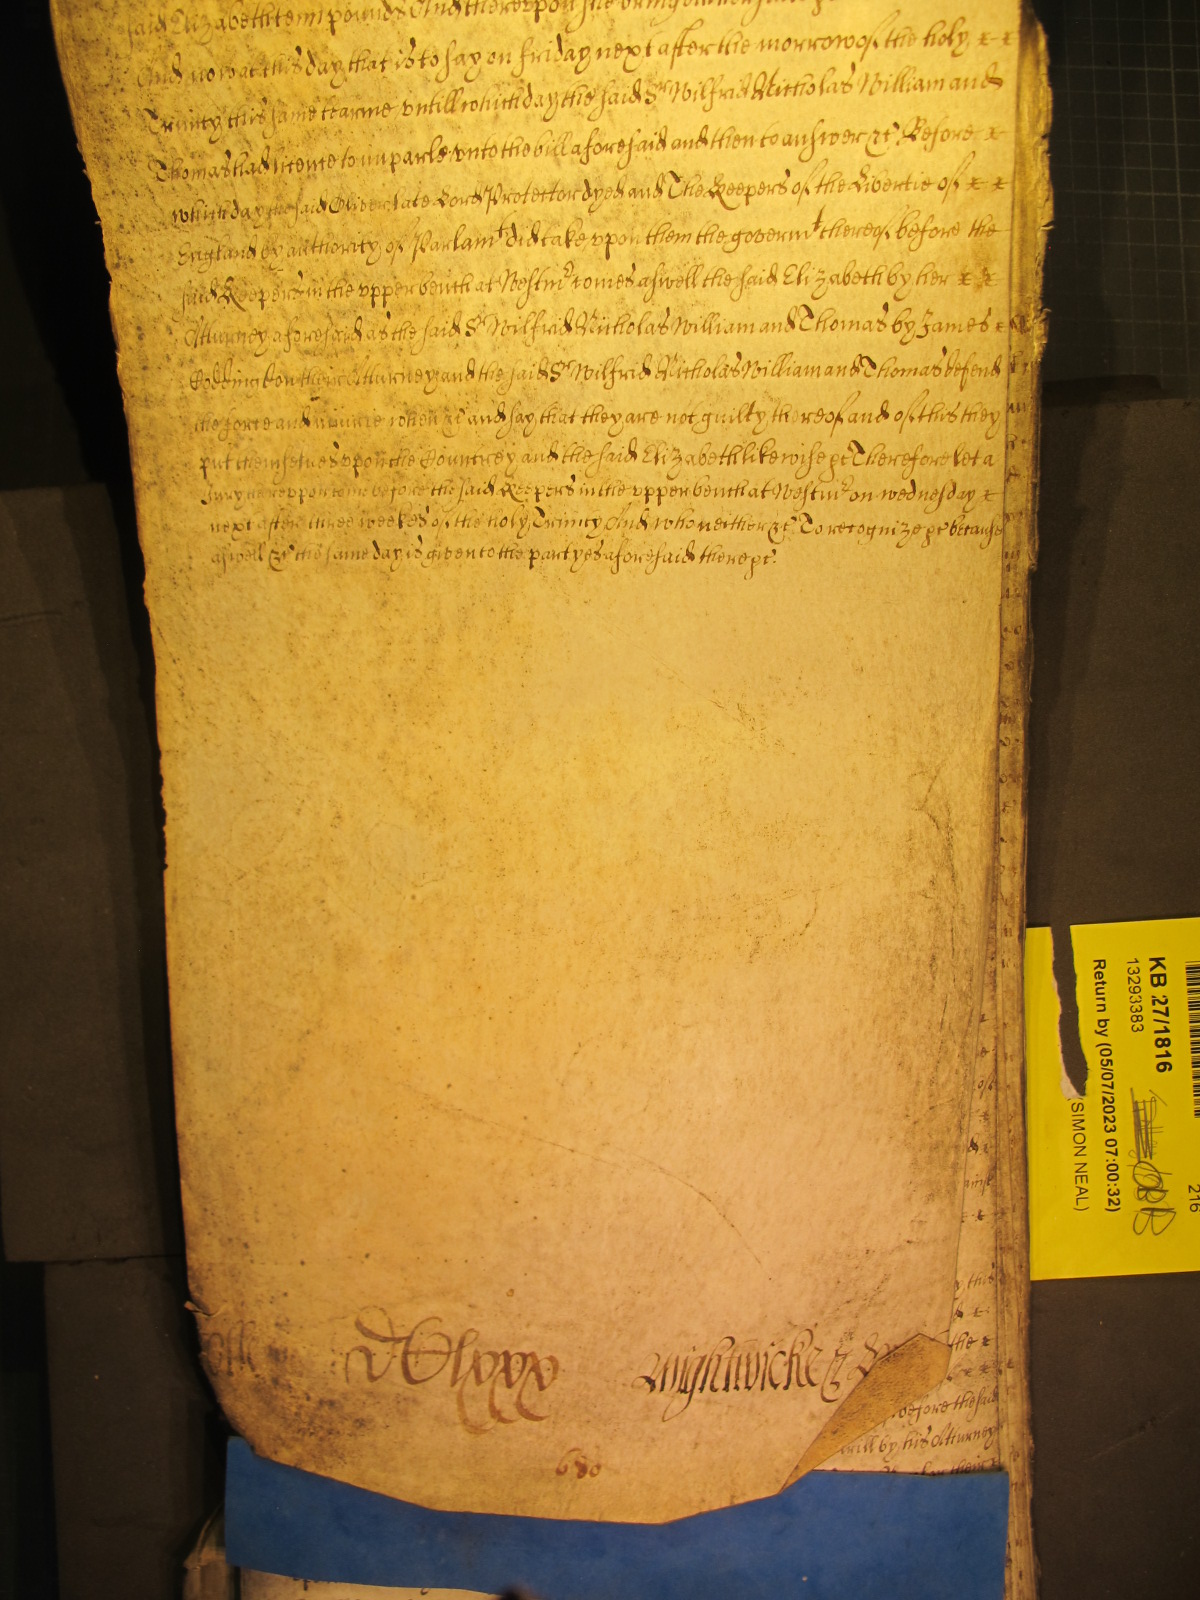 said Elizabeth tenn pounds And thereupon she bringeth her suite
And now at this day that is to say on friday next after the morrow of the holy
Trinity this same tearme untill which day the said Sr Wilfrid Nicholas William and
Thomas had licence to imparle unto the bill aforesaid and then to answer &c Before
which day the said Oliver late Lord Protector dyed and The Keepers of the Libertie of
England by authority of Parlamt did take upon them the governmt thereof before the
said Keepers in the upper bench at Westmr comes aswell the said Elizabeth by her
Atturney aforesaid as the said Sr Wilfrid Nicholas William and Thomas by James
Coddington their Atturney and the said Sr Wilfrid Nicholas William and Thomas defend
the force and iniurie when &c and say that they are not guilty thereof and of this they
put themselves upon the Countrey and the said Elizabeth likewise &c Therefore let a
Jury thereupon come before the said Keepers in the upper bench at Westmr on wednesday
next after three weekes of the holy Trinity And who neither &c To recognize &c because
aswell &c the same day is given to the partyes aforesaid there &c.
the
before the said
by his Atturney
Wightwicke &
680
KB 27/1816
13293383
Return by (05/07/2023 07:00:32)
SIMON NEAL)
216